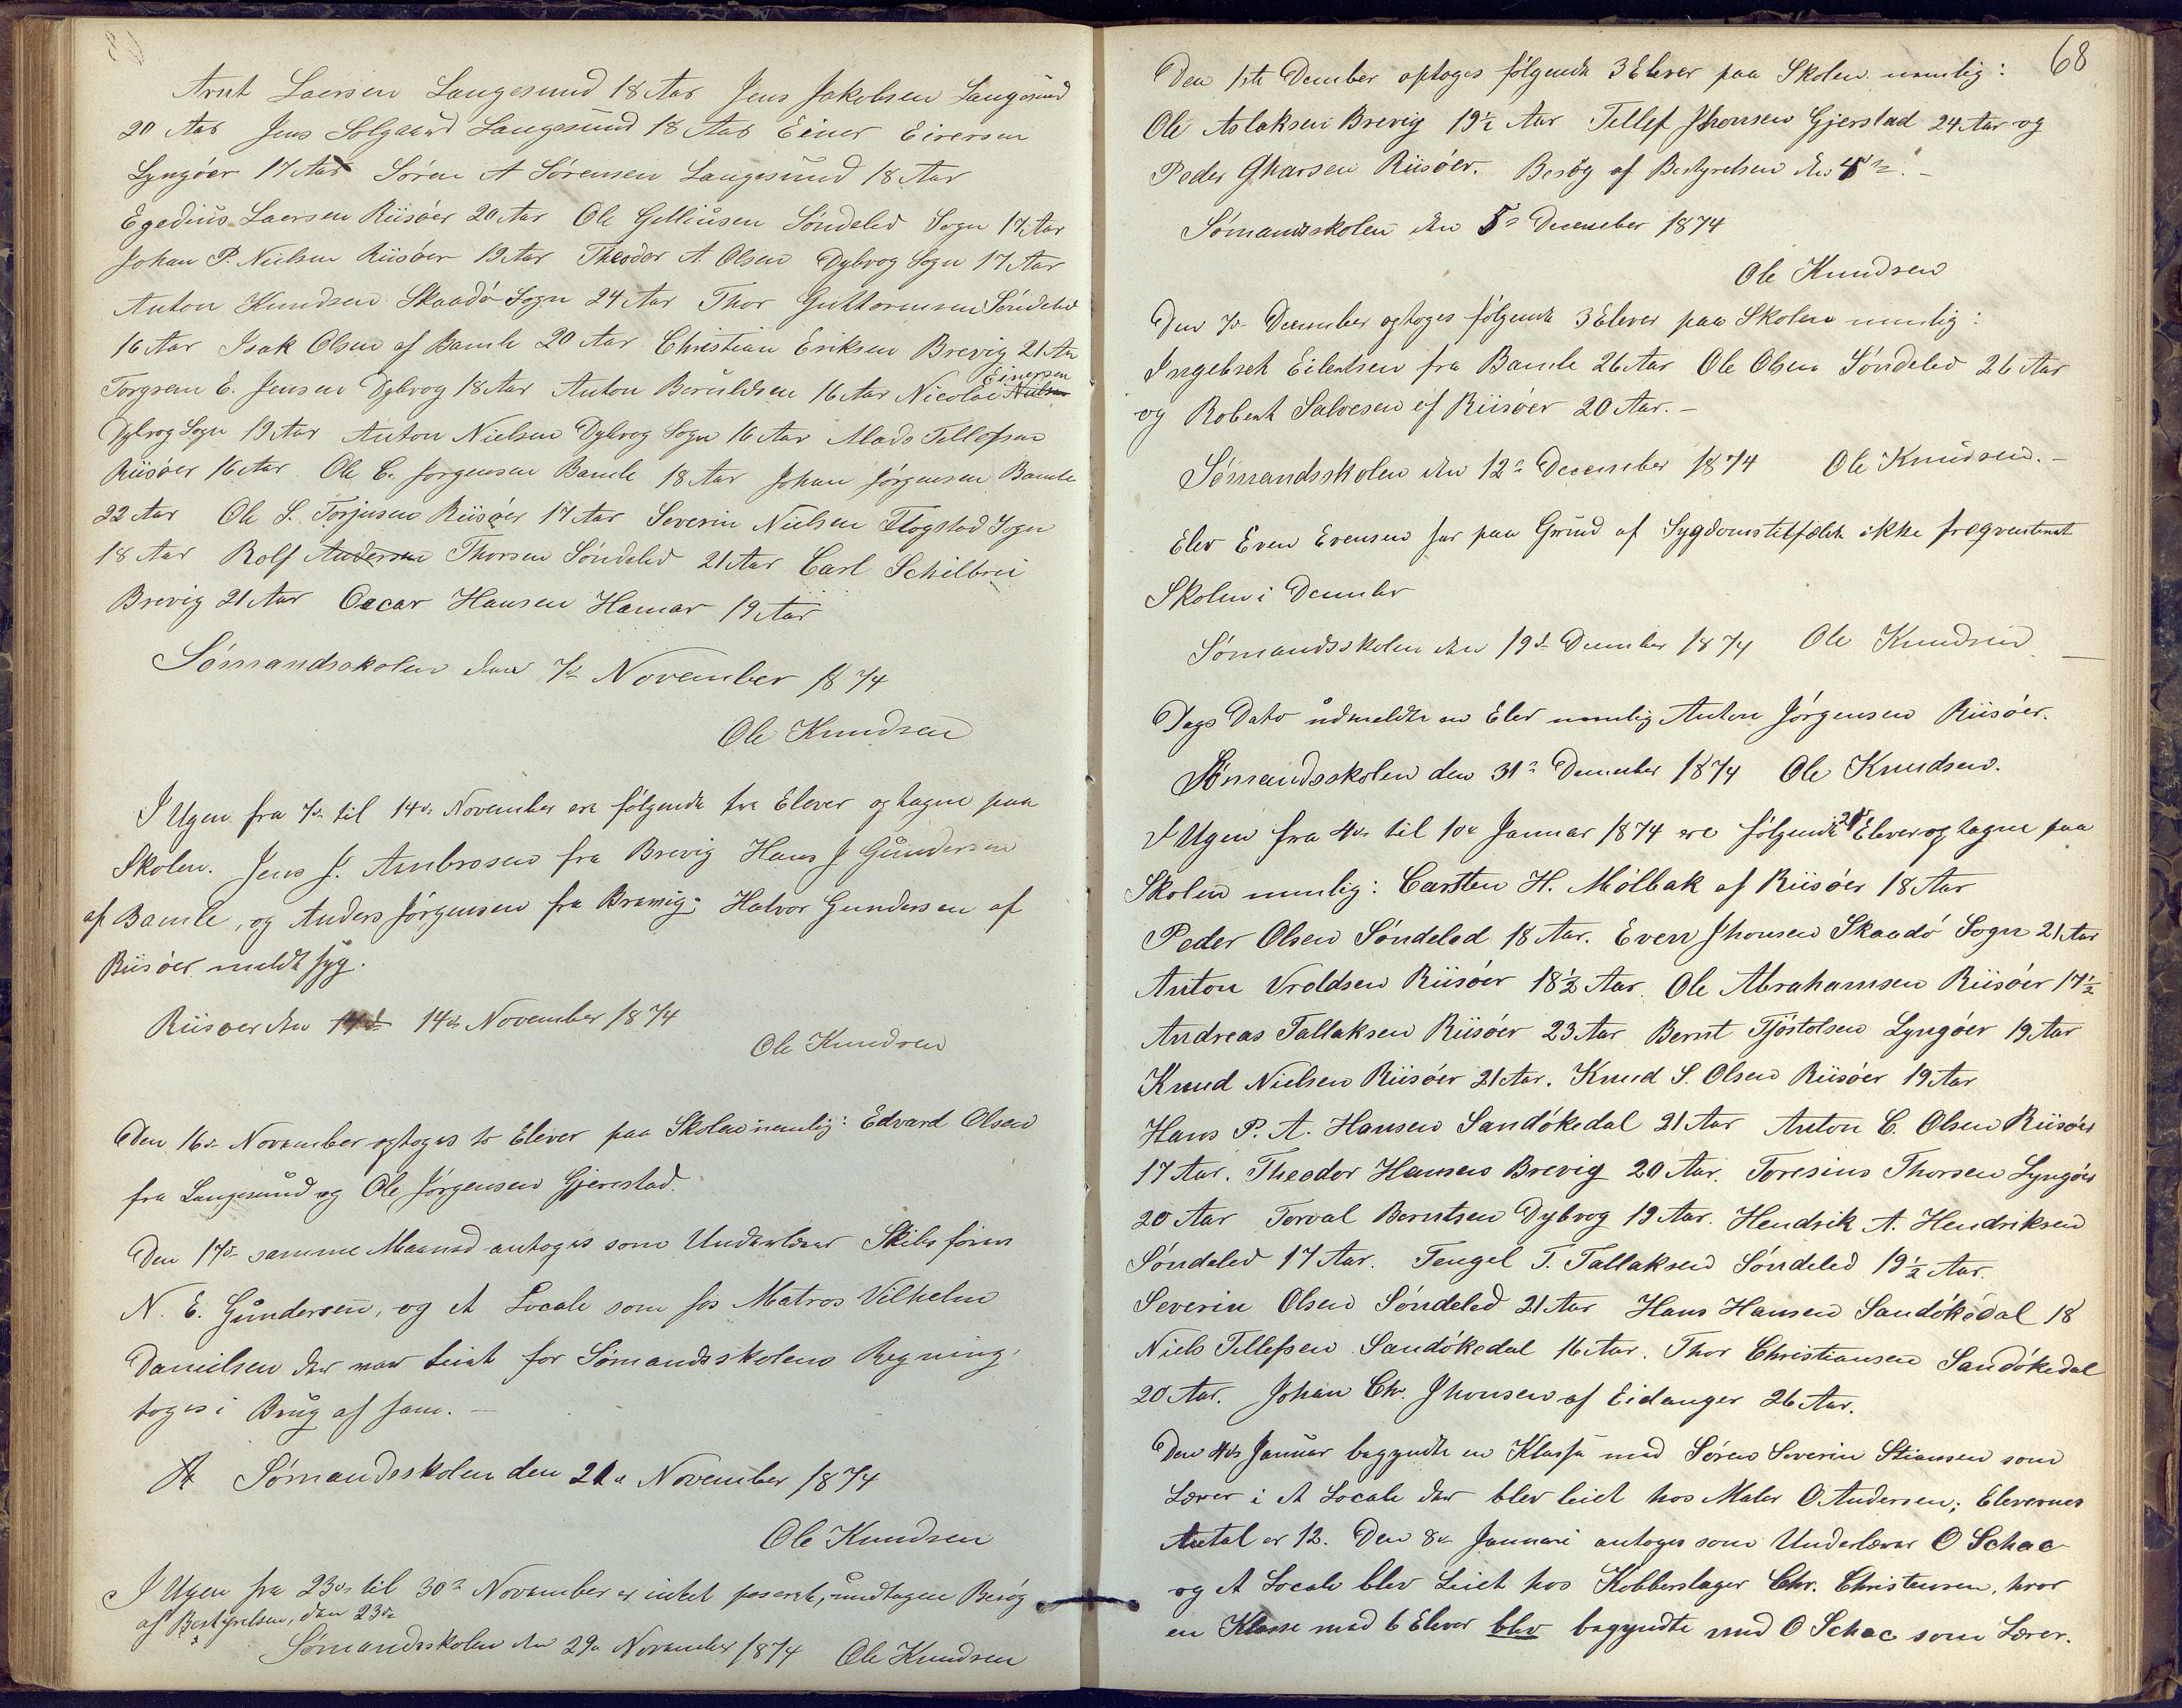 Arnt Larsen Langesund 18 Aar Jens Jakobsen Langesund
20 Aar Jens Solgaard Langesund 18 Aar Einer Eiversen
Lyngöer 17 Aar Sören A Sörensen Langesund 18 Aar
Egedius Larsen Riisöer 20 Aar Ole Gelliusen Söndeled Sogn 17 Aar
Johan P. Nielsen Riisöer 19 Aar Theodor A. Olsen Dybvog Sogn 17 Aar
Anton Knudsen Skaadö Sogn 24 Aar Thor Guttormsen Söndeled
16 Aar Isak Olsen af Bamle 20 Aar Christian Eriksen Brevig 21 Aar
Torgrem E. Jensen Dybvog 18 Aar Anton Beruldsen 16 Aar Nicolai Einersen
Dybvog Sogn 19 Aar Anton Nielsen Dybvog Sogn 16 Aar Mads Tellefsen
Riisöer 16 Aar Ole C. Jorgensen Bamle 18 Aar Johan Jörgensen Bamle
22 Aar Ole S. Torjusen Riisöer 17 Aar Severin Nielsen Flogstad Sogn
18 Aar Rolf Andersen Thorsen Söndeled 21 Aar Carl Schilbrei
Brevig 21 Aar Oscar Hansen Hamar 19 Aar
Sömandsskolen den 7de November 1874
Ole Knudsen
I Ugen fra 7de til 14de November ere fölgende tre Elever optagne paa
Skolen. Jens J. Ambrosen fra Brevig Hans J Gundersen
af Bamle, og Anders Jörgensen fra Brevig; Halvor Gundersen af
Riisöer meldt syg.
Riisoer den 14de 14de November 1874
Ole Knudsen
Den 16de November optoges to Elever paa Skolen nemlig: Edvard Olsen
fra Langesund og Ole Jörgensen Gjerestad.
Den 17de samme Maaned antoges som Underlærer Skibsförer
N. E. Gundersen, og et Locale som hos Matros Vilhelm
Danielsen der var leiet for Sömandsskolens Regning,
toges i Brug af ham. -
Sömandsskolen den 21de November 1874
Ole Knudsen
I Ugen fra 23de til 30te November er intet paseret, undtagen Besög
af Bestyrelsen, den 23de
Sömandsskolen den 29de November 1874 Ole Knudsen
68
Den 1ste Decmber optoges fölgende 3 Elever paa Skolen nemlig:
Ole Aslaksen Brevig 19½ Aar Tellef Jhonsen Gjerstad 24 Aar og
Peder Gharsen Riisöer. Besög af Bestyrelsen den 4de. -
Sömandsskolen den 5te December 1874
Ole Knudsen
Den 7de December optoges fölgende 3 Elever paa Skolen nemlig:
Ingebret Eilertsen fra Bamle 26 Aar Ole Olsen Söndeled 26 Aar
og Robert Salvesen af Riisöer 20 Aar. -
Sömandsskolen den 12te December 1874 Ole Knudsen. -
Elev Even Evensen har paa Grund af Sygdomstilfælde ikke freqventeret
Skolen i Decmber
Sömandsskolen den 19de Decmber 1874 Ole Knudsen
Dags Dato udmeldte en Elev nemlig Anton Jörgensen Riisöer.
Sömandsskolen den 31te December 1874 Ole Knudsen.
I Ugen fra 4de til 10de Januar 1874 ere fölgende 20 Elever optagne paa
Skolen nemlig: Carsten H. Mölbak af Riisöer 18 Aar
Peder Olsen Söndeled 18 Aar. Even Jhonsen Skaadö Sogn 21 Aar
Anton Vroldsen Riisöer 18½ Aar Ole Abrahamsen Riisöer 17½
Andreas Tallaksen Riisöer 23 Aar Bernt Tjöstolsen Lyngöer 19 Aar
Knud Nielsen Riisöer 21 Aar. Knud S. Olsen Riisöer 19 Aar
Hans P. A. Hansen Sandökedal 21 Aar Anton C. Olsen Riisöer
17 Aar. Theodor Hansen Brevig 20 Aar. Toresius Thorsen Lyngöer
20 Aar Torval Berntsen Dybvog 19 Aar. Hendrik A. Hendriksen
Söndeled 17 Aar. Tengel T. Tallaksen Söndeled 19½ Aar.
Severin Olsen Söndeled 21 Aar Hans Hansen Sandökedal 18
Niels Tellefsen Sandökedal 16 Aar. Thor Christiansen Sandökedal
20 Aar. Johan Chr. Jhonsen af Eidanger 26 Aar.
Den 4de Januar begyndte en Klasse med Sören Severin Stiansen som
Lærer i et Locale der blev leiet hos Maler O Andersen; Elevernes
Antal er 12. Den 8de Januari antoges som Underlærer O Schac
og et Locale blev leiet hos Kobberslager Chr. Christensen, hvor
en Klasse med 6 Elever blev begyndte med O Schac som Lærer.